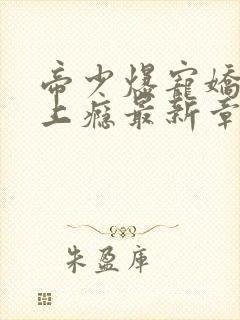 帝少爆宠娇
上瘾最新章
朱盈库